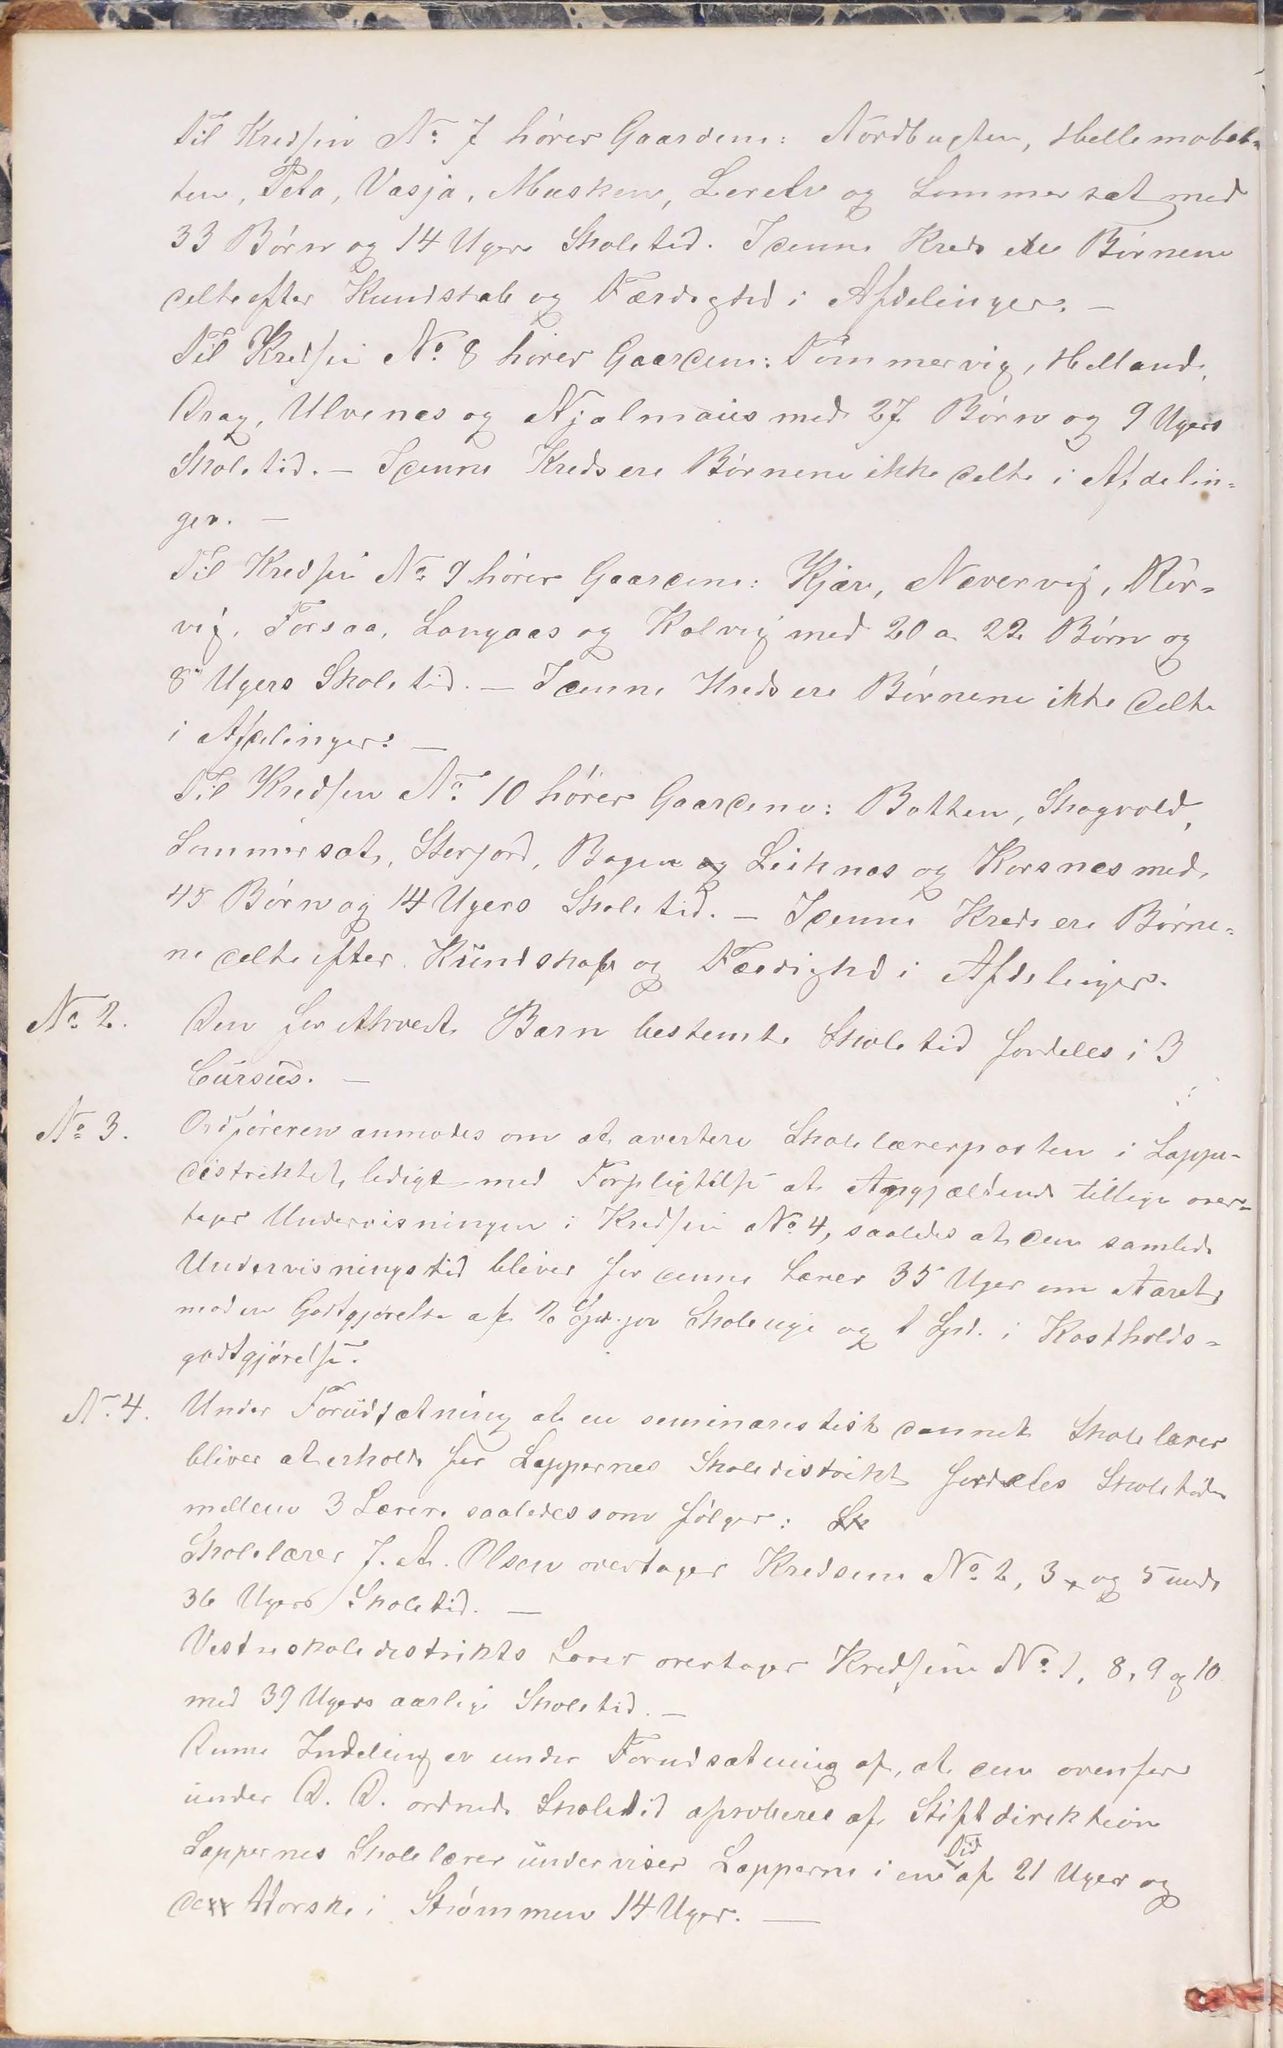 Til Kredsen No. 7 hører Gaardene: Nordbugten, Hellemobot-
ten, Peta, Vasja, Musken, Lerelv og Sommersæt med
33 Børn og 14 Ugers Skoletid. I denne Kreds ere Børnene
delte efter Kundskab og Færdighed i Afdelinger. –
Til Kredsen No. 8 hører Gaardene: Tømmervig, Helland,
Drag, Ulvenæs og Njalmaius med 27 Børn og 9 Ugers
Skoletid. – I denne Kreds ere Børnene ikke delte i Afdelin-
ger. –
Til Kredsen No. 9 hører Gaardene: Kjær, Nævervig, Rør-
vig, Forsaa, Langaas og Kalvig med 20 a 22 Børn og
8 Ugers Skoletid. – I denne Kreds ere Børnene ikke delte
i Afdelinger. –
Til Kredsen No. 10 hører Gaardene: Botten, Skogvold,
Sommersæt, Sterjord, Bogen og Leiknes og Korsnes med
45 Børn og 14 Ugers Skoletid. – I denne Kreds ere Børne-
ne delte efter Kundskab og Færdighed i Afdelinger.
No. 2. Den for ethvert Barn bestemte Skoletid fordeles i 3
Cursus. –
No. 3. Ordføreren anmodes om at avertere Skolelærerposten i Lappe-
distriktet ledigt med Forpligtelse at Angjældende tillige over-
tager Undervisningen i Kredsen No. 4, saaledes at den samlede
Undervisningstid bliver for denne Lærer 35 Uger om Aaret
mod en Godtgjørelse af 2 Spd. pr Skoleuge og 1 Spd. i Kostholds-
godtgjørelse.
No. 4. Under Forudsætning at en seminaristisk dannet Skolelærer
bliver at erholde for Lappernes Skoledistrikt fordeles Skoletiden
mellem 3 Lærere saaledes som følger:
Skolelærer J. A. Olsen overtager Kredsene No. 2, 3 og 5 med
36 Ugers Skoletid. –
Vestre skoledistrikts Lærer overtager Kredsene No. 1, 8, 9 og 10
med 39 Ugers aarlige Skoletid. –
Denne Indeling er under Forudsætning af, at den ovenfor
under D. D. ordnede Skoletid aproberes af Stiftdirektion
Lappernes Skolelærer underviser Lapperne i en Tid af 21 Uger og
de Norske i Strømmen 14 Uger. –